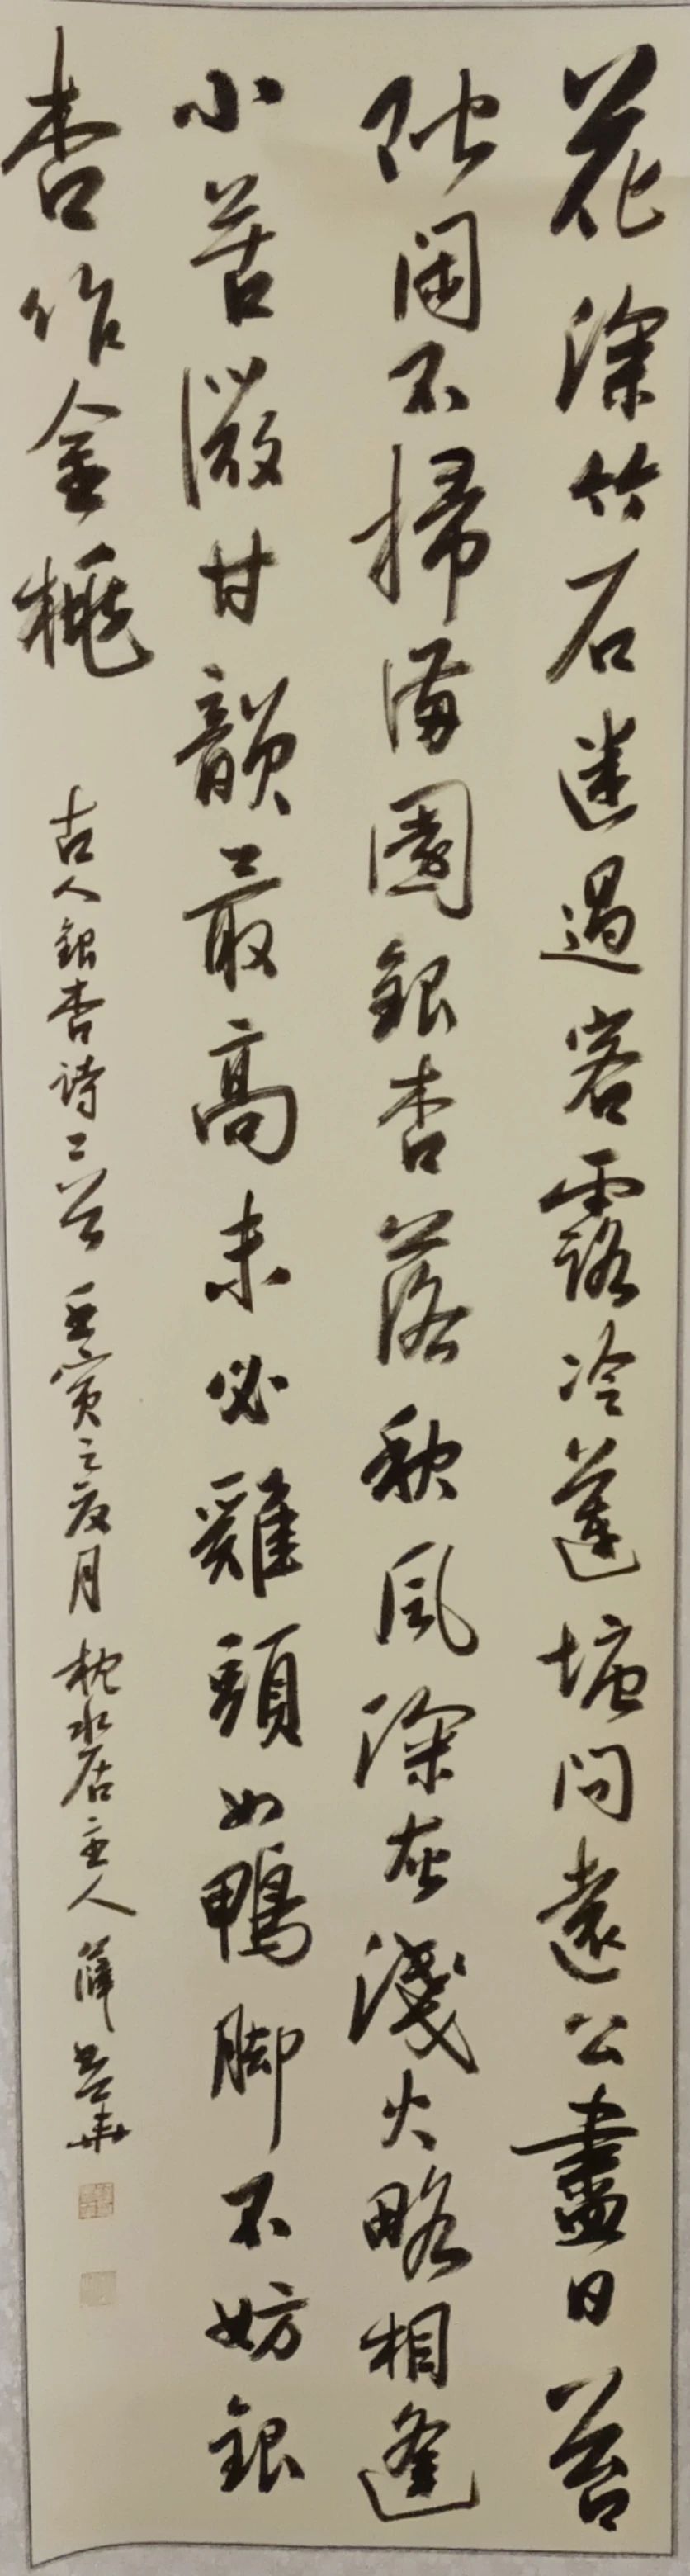 花深竹石迷過客露冷蓮塘問遠公盡日苔
階閑不掃滿園銀杏落秋風深灰淺火略相逢
小苦微甘韻最高未必雞頭如鴨脚不妨銀
杏作金桃
古人銀杏詩二首 壬寅之夏月 枕水居主人 薛華